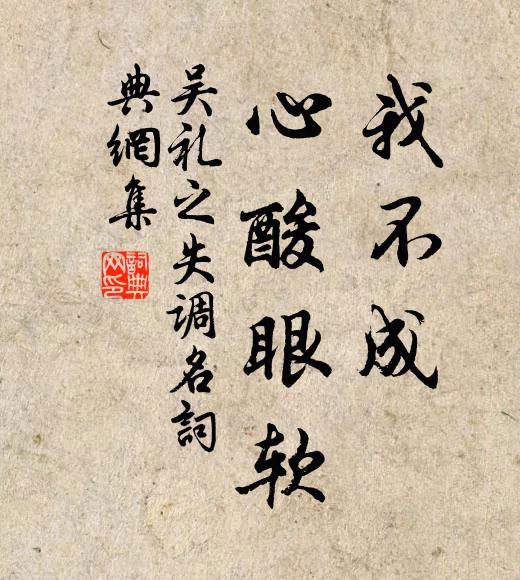 我不成
心酸眼软
吴礼之失调名詞
典網集
詞典
网印